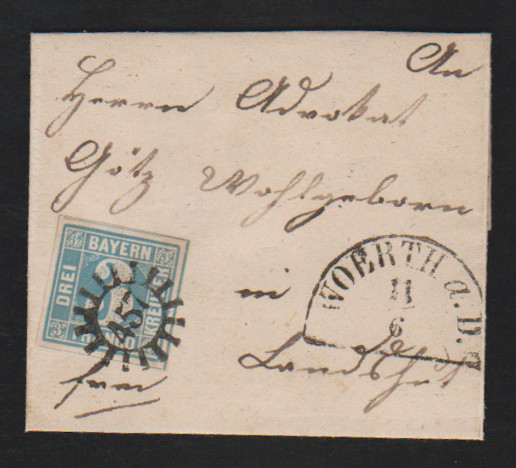 An
Herrn Advokat
Götz Wohlgeborn
in
Landshut
frei
BAYERN
DREI
KREUZER
WOERTH a. D.
11
6